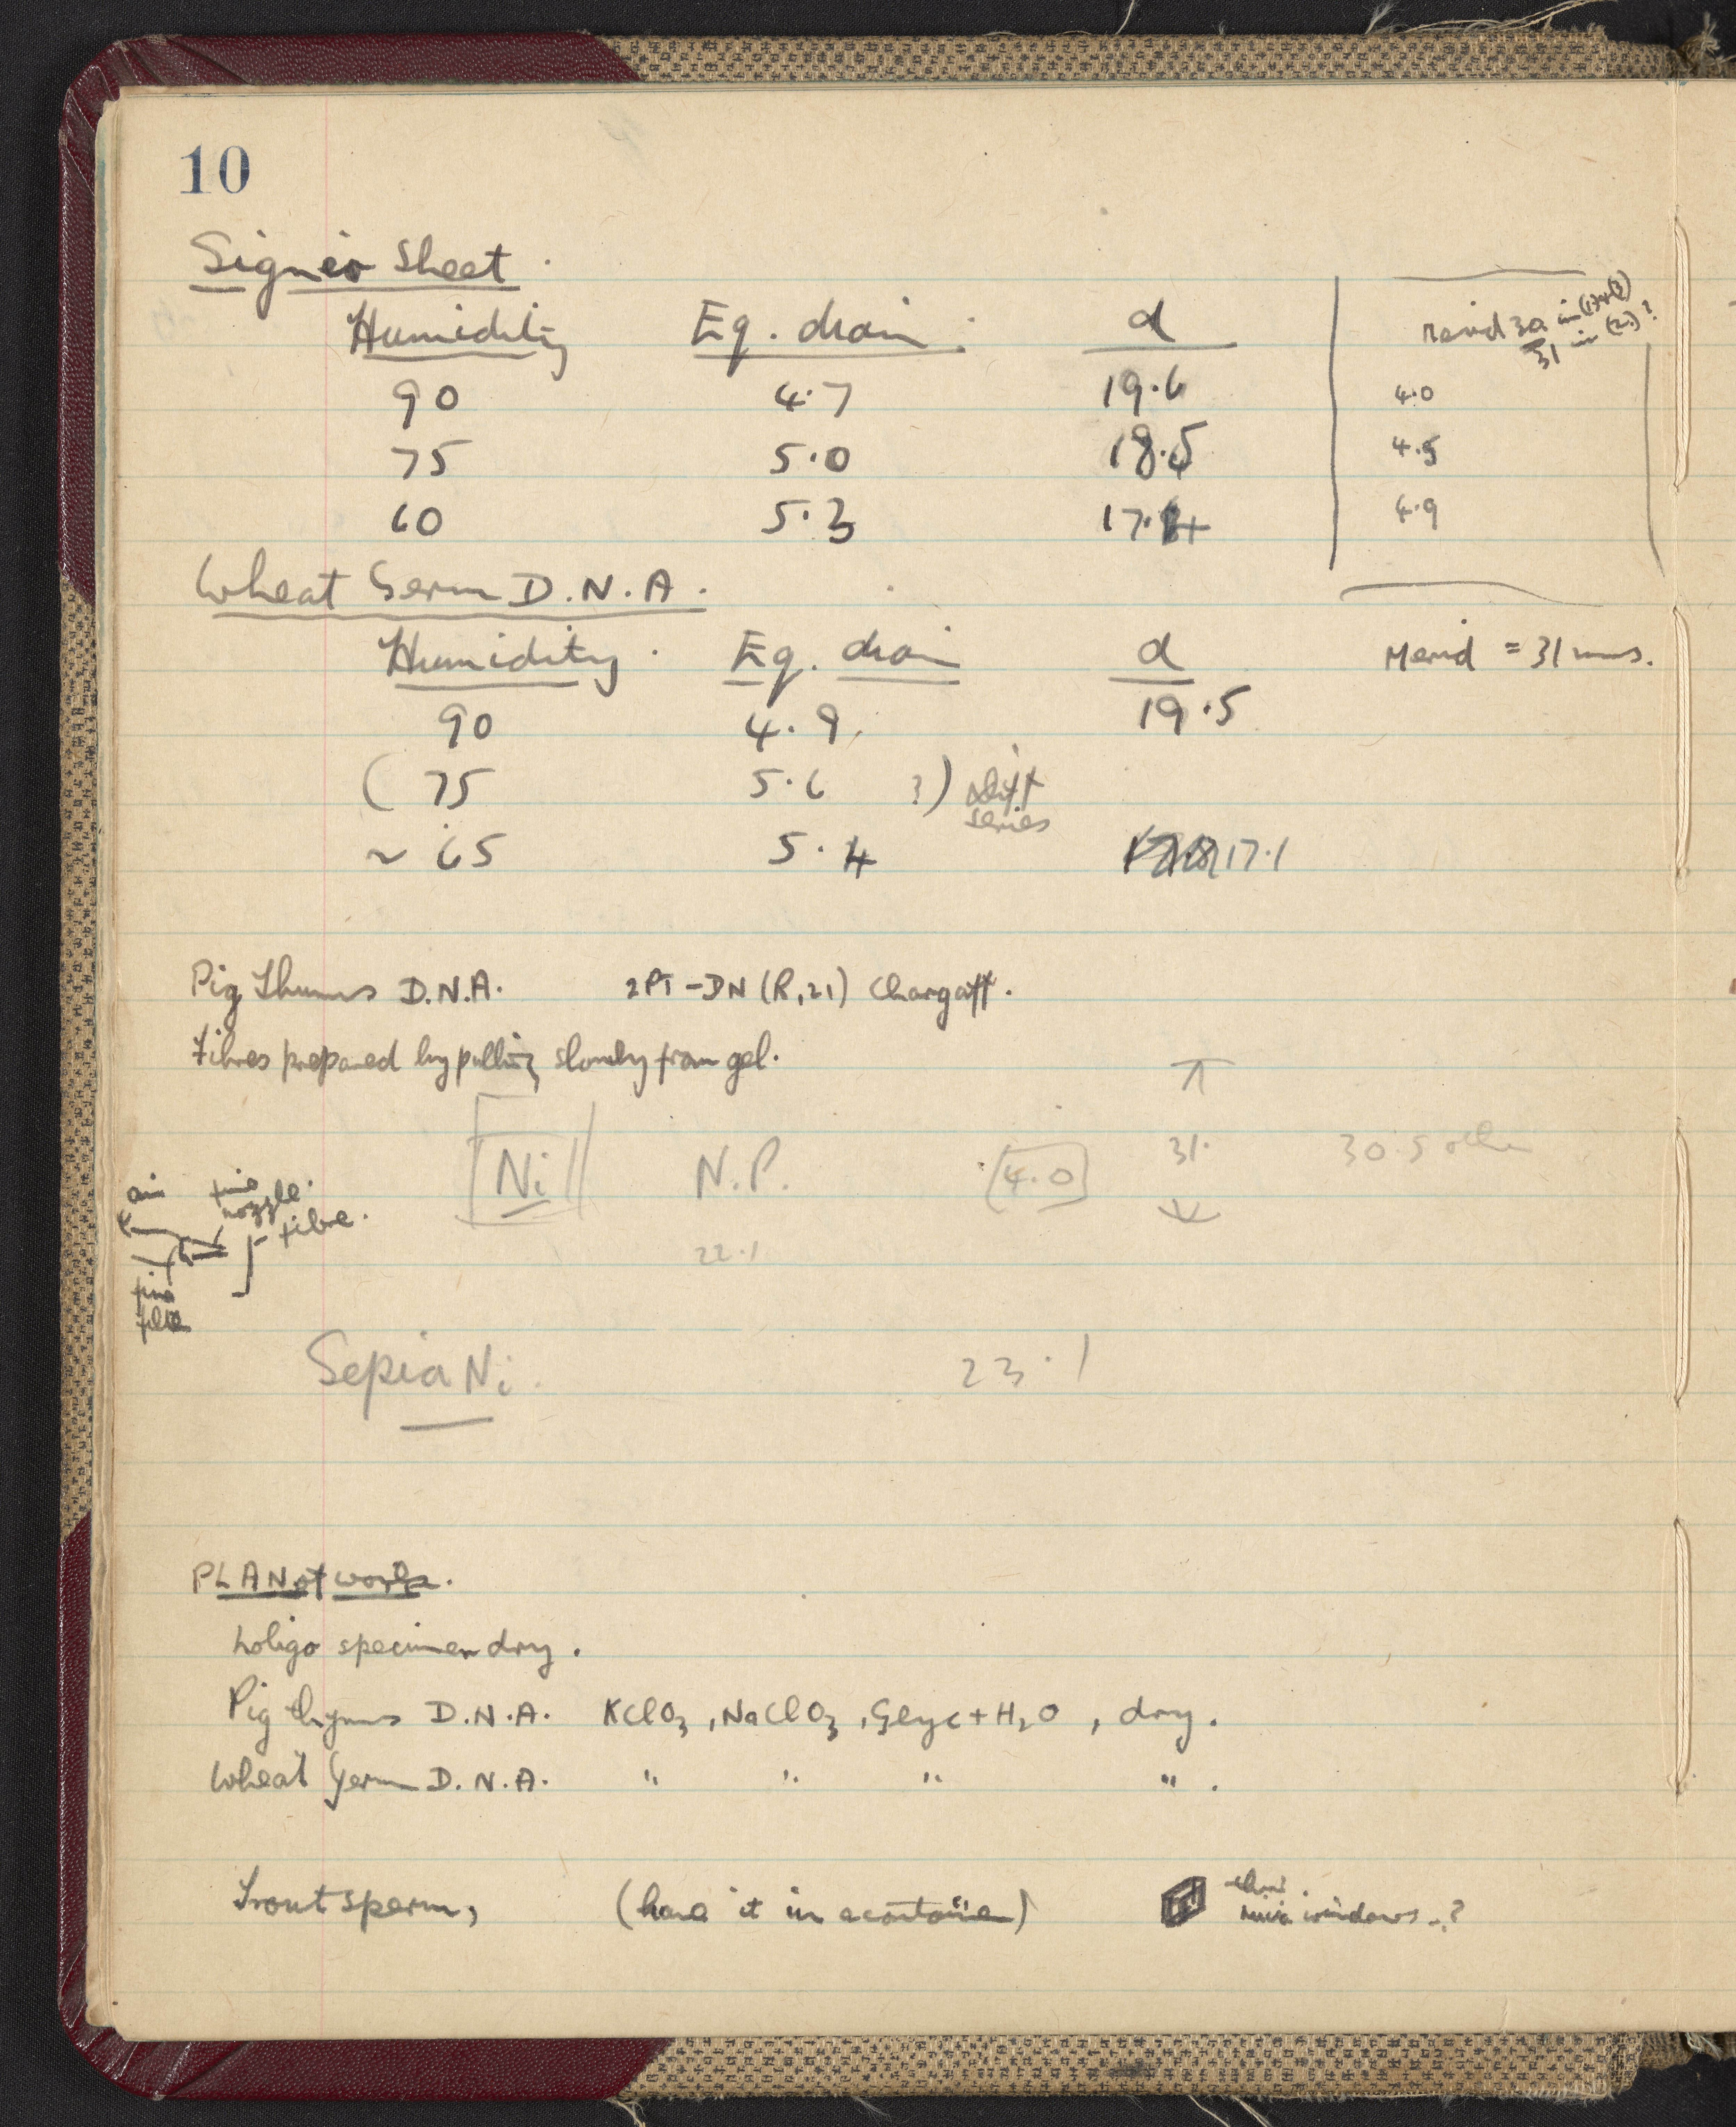 10
Signer Sheet.
Humidity Eq. diam. d Merid 30 in (1)+(3)
31 in (2)?
90 4.7 19.6 4.0
75 5.0 18.5 4.5
60 5.3 17.4 4.9
Wheat Germ D.N.A.
Humidity. Eq. diam d Merid = 31 mms.
90 4.9 19.5
(75 5.6 ?) diff
series
~ 65 5.4 17.1
Pig Thymus D.N.A. 2PT-DN (R,21) Chargaff.
Fibres prepared by pulling slowly from gel.
Ni N.P. 4.0 31. 30.5 other
air fine
nozzle.
fibre.
22.1
fine
Sepia Ni. 23.1
PLAN of work.
Loligo specimen dry.
Pig thymus D.N.A. KClO3, NaClO3, Glyc + H2O, dry.
Wheat Germ D.N.A. " " " ".
Trout sperm, (have it in a container) thin
mica windows..?